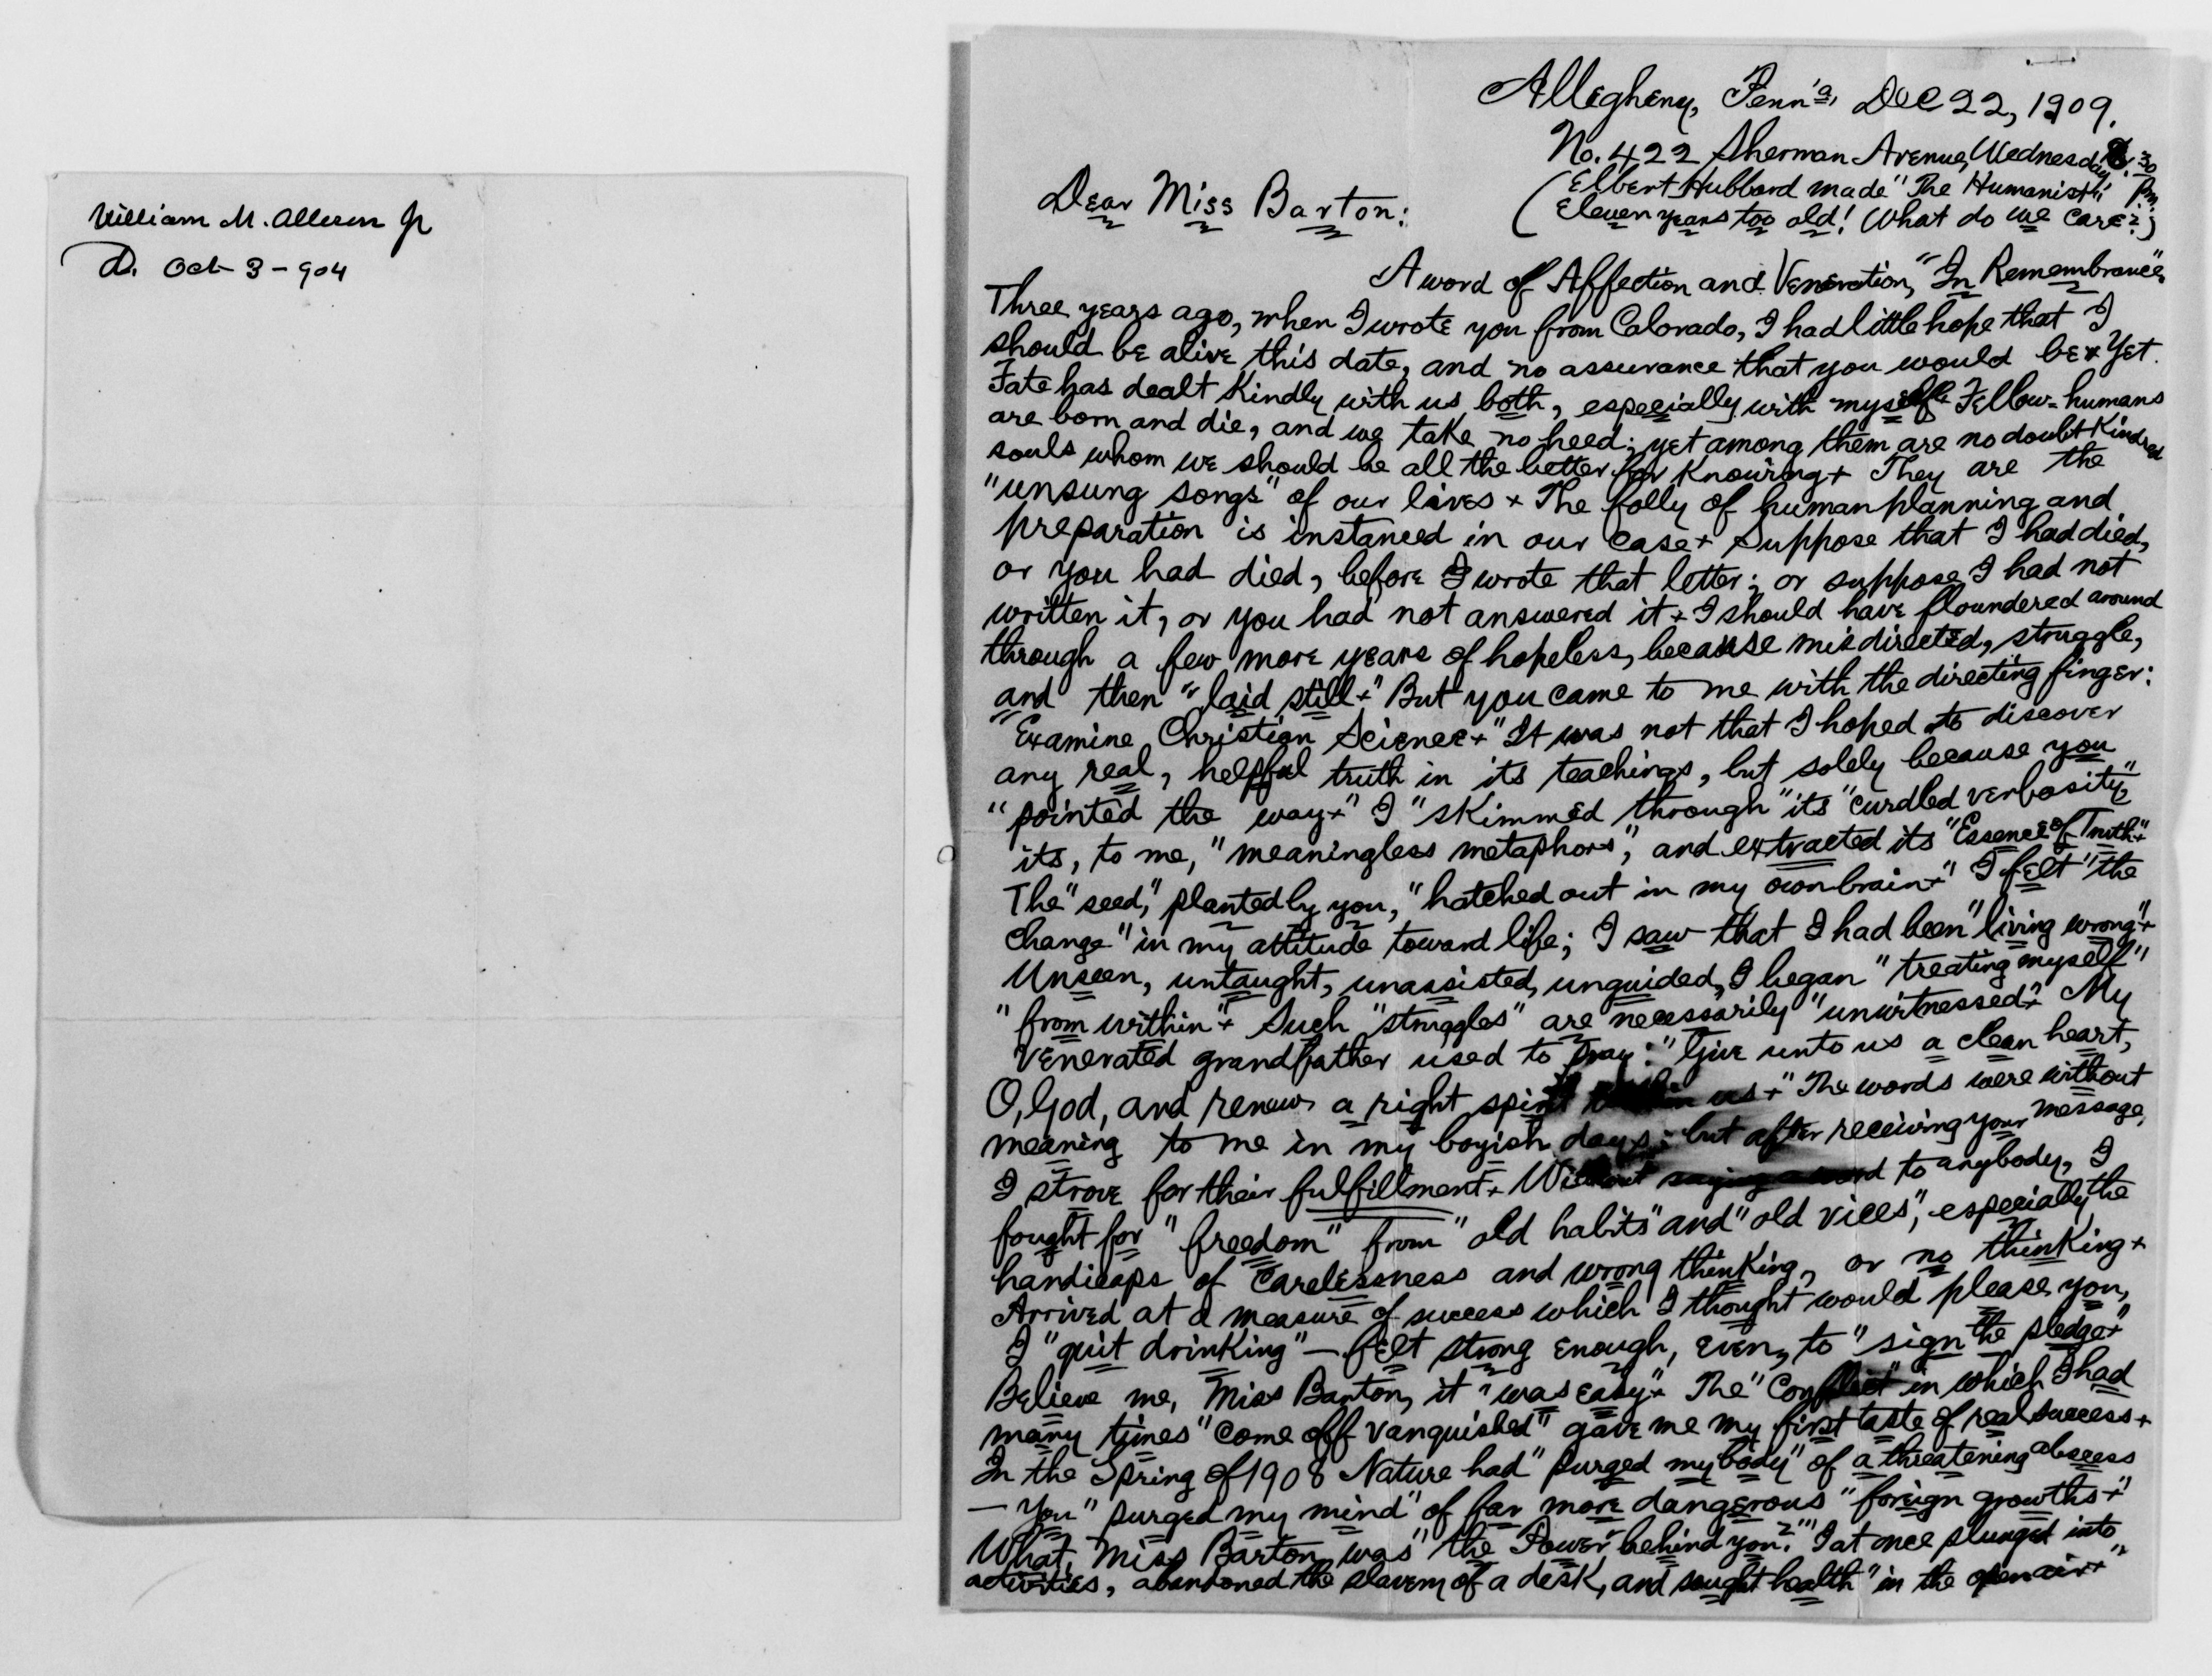 William M. Allison Jr
D. Oct 3 - 904
Allegheny, Penn'a, Dec 22, 1909.
No. 422 Sherman Avenue, Wednesday, 8.30 Pm.
(Elbert Hubbard made "The Humanist"
Eleven years too old! What do we care?)
Dear Miss Barton:
A word of Affection and Veneration, "In Remembrance"
Three years ago, when I wrote you from Colorado, I had little hope that I
should be alive this date, and no assurance that you would be + Yet
Fate has dealt kindly with us both, especially with myself. Fellow-humans
are born and die, and we take no heed; yet among them are no doubt Kindred
souls whom we should be all the better for knowing + They are the
"unsung songs" of our lives + The folly of human planning and
preparation is instanced in our case + Suppose that I had died,
or you had died, before I wrote that letter; or suppose I had not
written it, or you had not answered it + I should have floundered around
through a few more years of hopeless, because misdirected, struggle,
and then "laid still +" But you came to me with the directing finger:
"Examine Christian Science +" It was not that I hoped to discover
any real, helpful truth in its teachings, but solely because you
"pointed the way +" I "skimmed through" its "curdled verbosity,"
its, to me, "meaningless metaphors", and extracted its "Essence of Truth +"
The "seed," planted by you, "hatched out in my own brain +" I felt "the
change" in my attitude toward life; I saw that I had been "living wrong" +
Unseen, untaught, unassisted, unguided, I began "treating myself"
"from within" + Such "struggles" are necessarily "unwitnessed" + My
venerated grandfather used to pray: "Give unto us a clean heart,
O, God, and renew a right spirit within us +" The words were without
meaning to me in my boyish days; but after receiving your message,
I strove for their fulfillment + Without saying a word to anybody, I
fought for "freedom" from "old habits" and "old vices", especially the
handicaps of carelessness and wrong thinking, or no thinking +
Arrived at a measure of success which I thought would please you,
I "quit drinking" — felt strong enough, even, to "sign the pledge +"
Believe me, Miss Barton, it "was easy" + The "Conflict" in which I had
many times "come off vanquished" gave me my first taste of real success +
In the Spring of 1908 Nature had "purged my body" of a threatening abscess
— You "purged my mind" of far more dangerous "foreign growths +"
What, Miss Barton, was "the Power behind you?" I at once plunged into
activities, abandoned the slavery of a desk, and sought health "in the open air +"